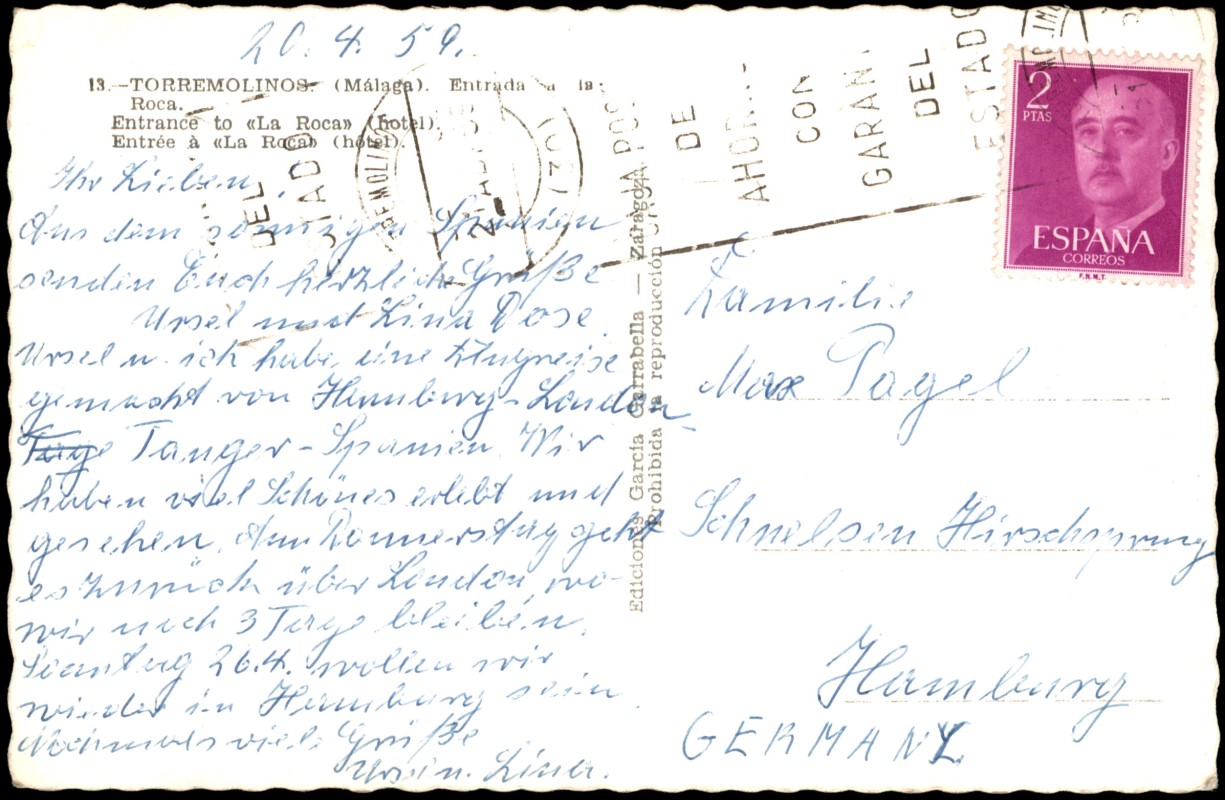 20.4.59.
13.—TORREMOLINOS. (Málaga). Entrada a la
Roca.
Entrance to «La Roca» (hotel).
Entrée à «La Roca» (hôtel).
Ihr Lieben,
Aus dem sonnigen Spanien
senden Euch herzliche Grüße
Ursel und Lina Dose.
Ursel u. ich habe eine Flugreise
gemacht von Hamburg-London-
Tanger-Spanien. Wir
haben viel Schönes erlebt und
gesehen. Am Donnerstag geht
es zurück über London, wo
wir noch 3 Tage bleiben.
Sonntag 26.4. wollen wir
wieder in Hamburg sein.
Nochmals viele Grüße
Lina.
Ediciones García Garrabella — Zaragoza
Prohibida la reproducción
DEL
ESTADO
LA POS
DE
AHOR
CON
GARAN
DEL
ESTADO
2
PTAS
ESPAÑA
CORREOS
F.N.M.T.
Familie
Max Pagel
Schnelsen Hirschsprung
Hamburg
GERMANY